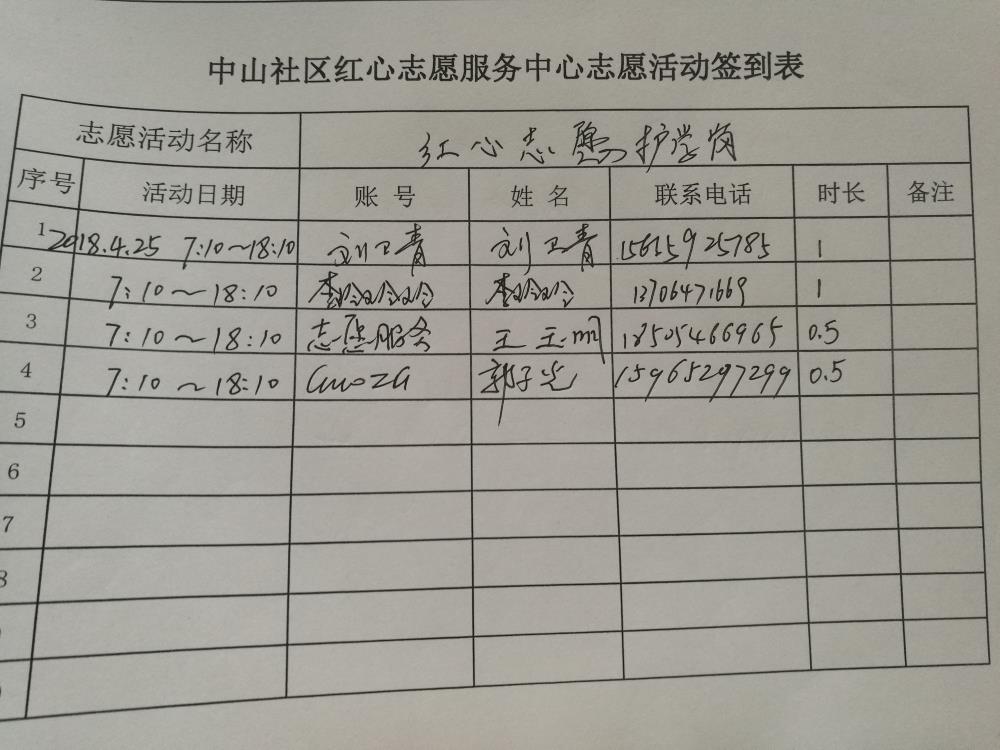 中山社区红心志愿服务中心志愿活动签到表
志愿活动名称 红心志愿护学岗
序号 活动日期 账号 姓名 联系电话 时长 备注
1 2018.4.25 7:10~18:10 刘卫青 刘卫青 15615925785 1
2 7:10~18:10 13706471669 1
3 7:10~18:10 志愿服务 王玉 18505466965 0.5
4 7:10~18:10 郭子光 15965297299 0.5
5
6
7
8